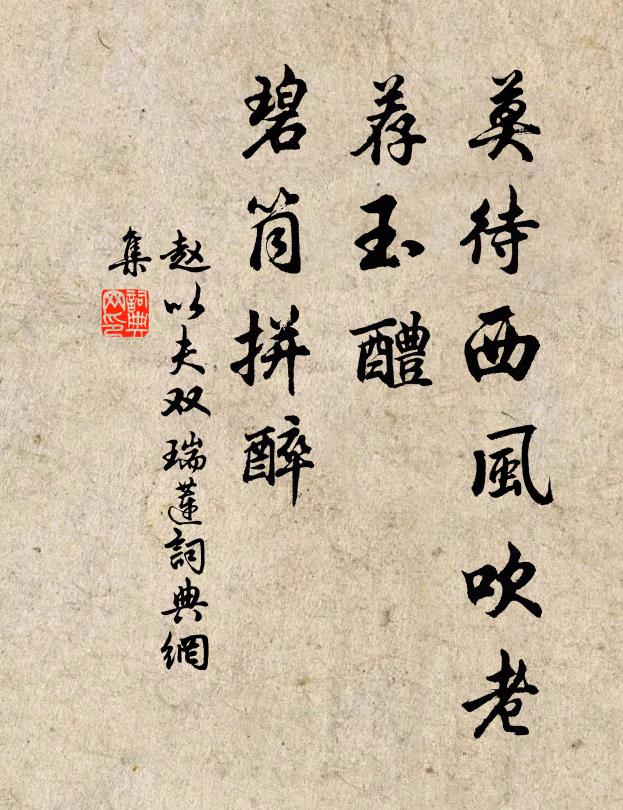 莫待西風吹老
荐玉醴
碧筒拼醉
赵以夫双瑞蓮詞典網
集
詞典網印